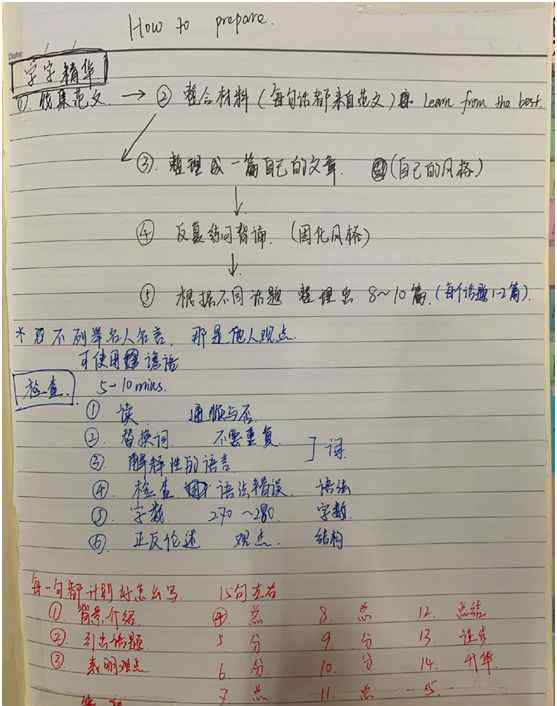 How to prepare.
字字精华
① 收集范文 → ② 整合材料 (每句话都来自范文) Learn from the best.
③ 整理成一篇自己的文章. (自己的风格)
④ 反复练习背诵. (固化风格)
⑤ 根据不同话题 整理出 8~10篇. (每个话题1-2篇).
* 不列举名人名言, 那是他人观点.
可使用谚语
检查. 5-10 mins.
① 读 通顺与否
② 替换词 不要重复. ] 词
③ 解释性的语言
④ 检查 语法错误. 语法
⑤ 字数 270~280. 字数
⑥ 正反论述 观点. 结构
每一句都计划好怎么写. 15句左右
① 背景介绍 ④ 总 8. 总 12. 总结
② 引出话题 5. 分 9. 分 13.
③ 表明观点 6. 分 10. 分 14. 升华
7. 总 11. 总 15.